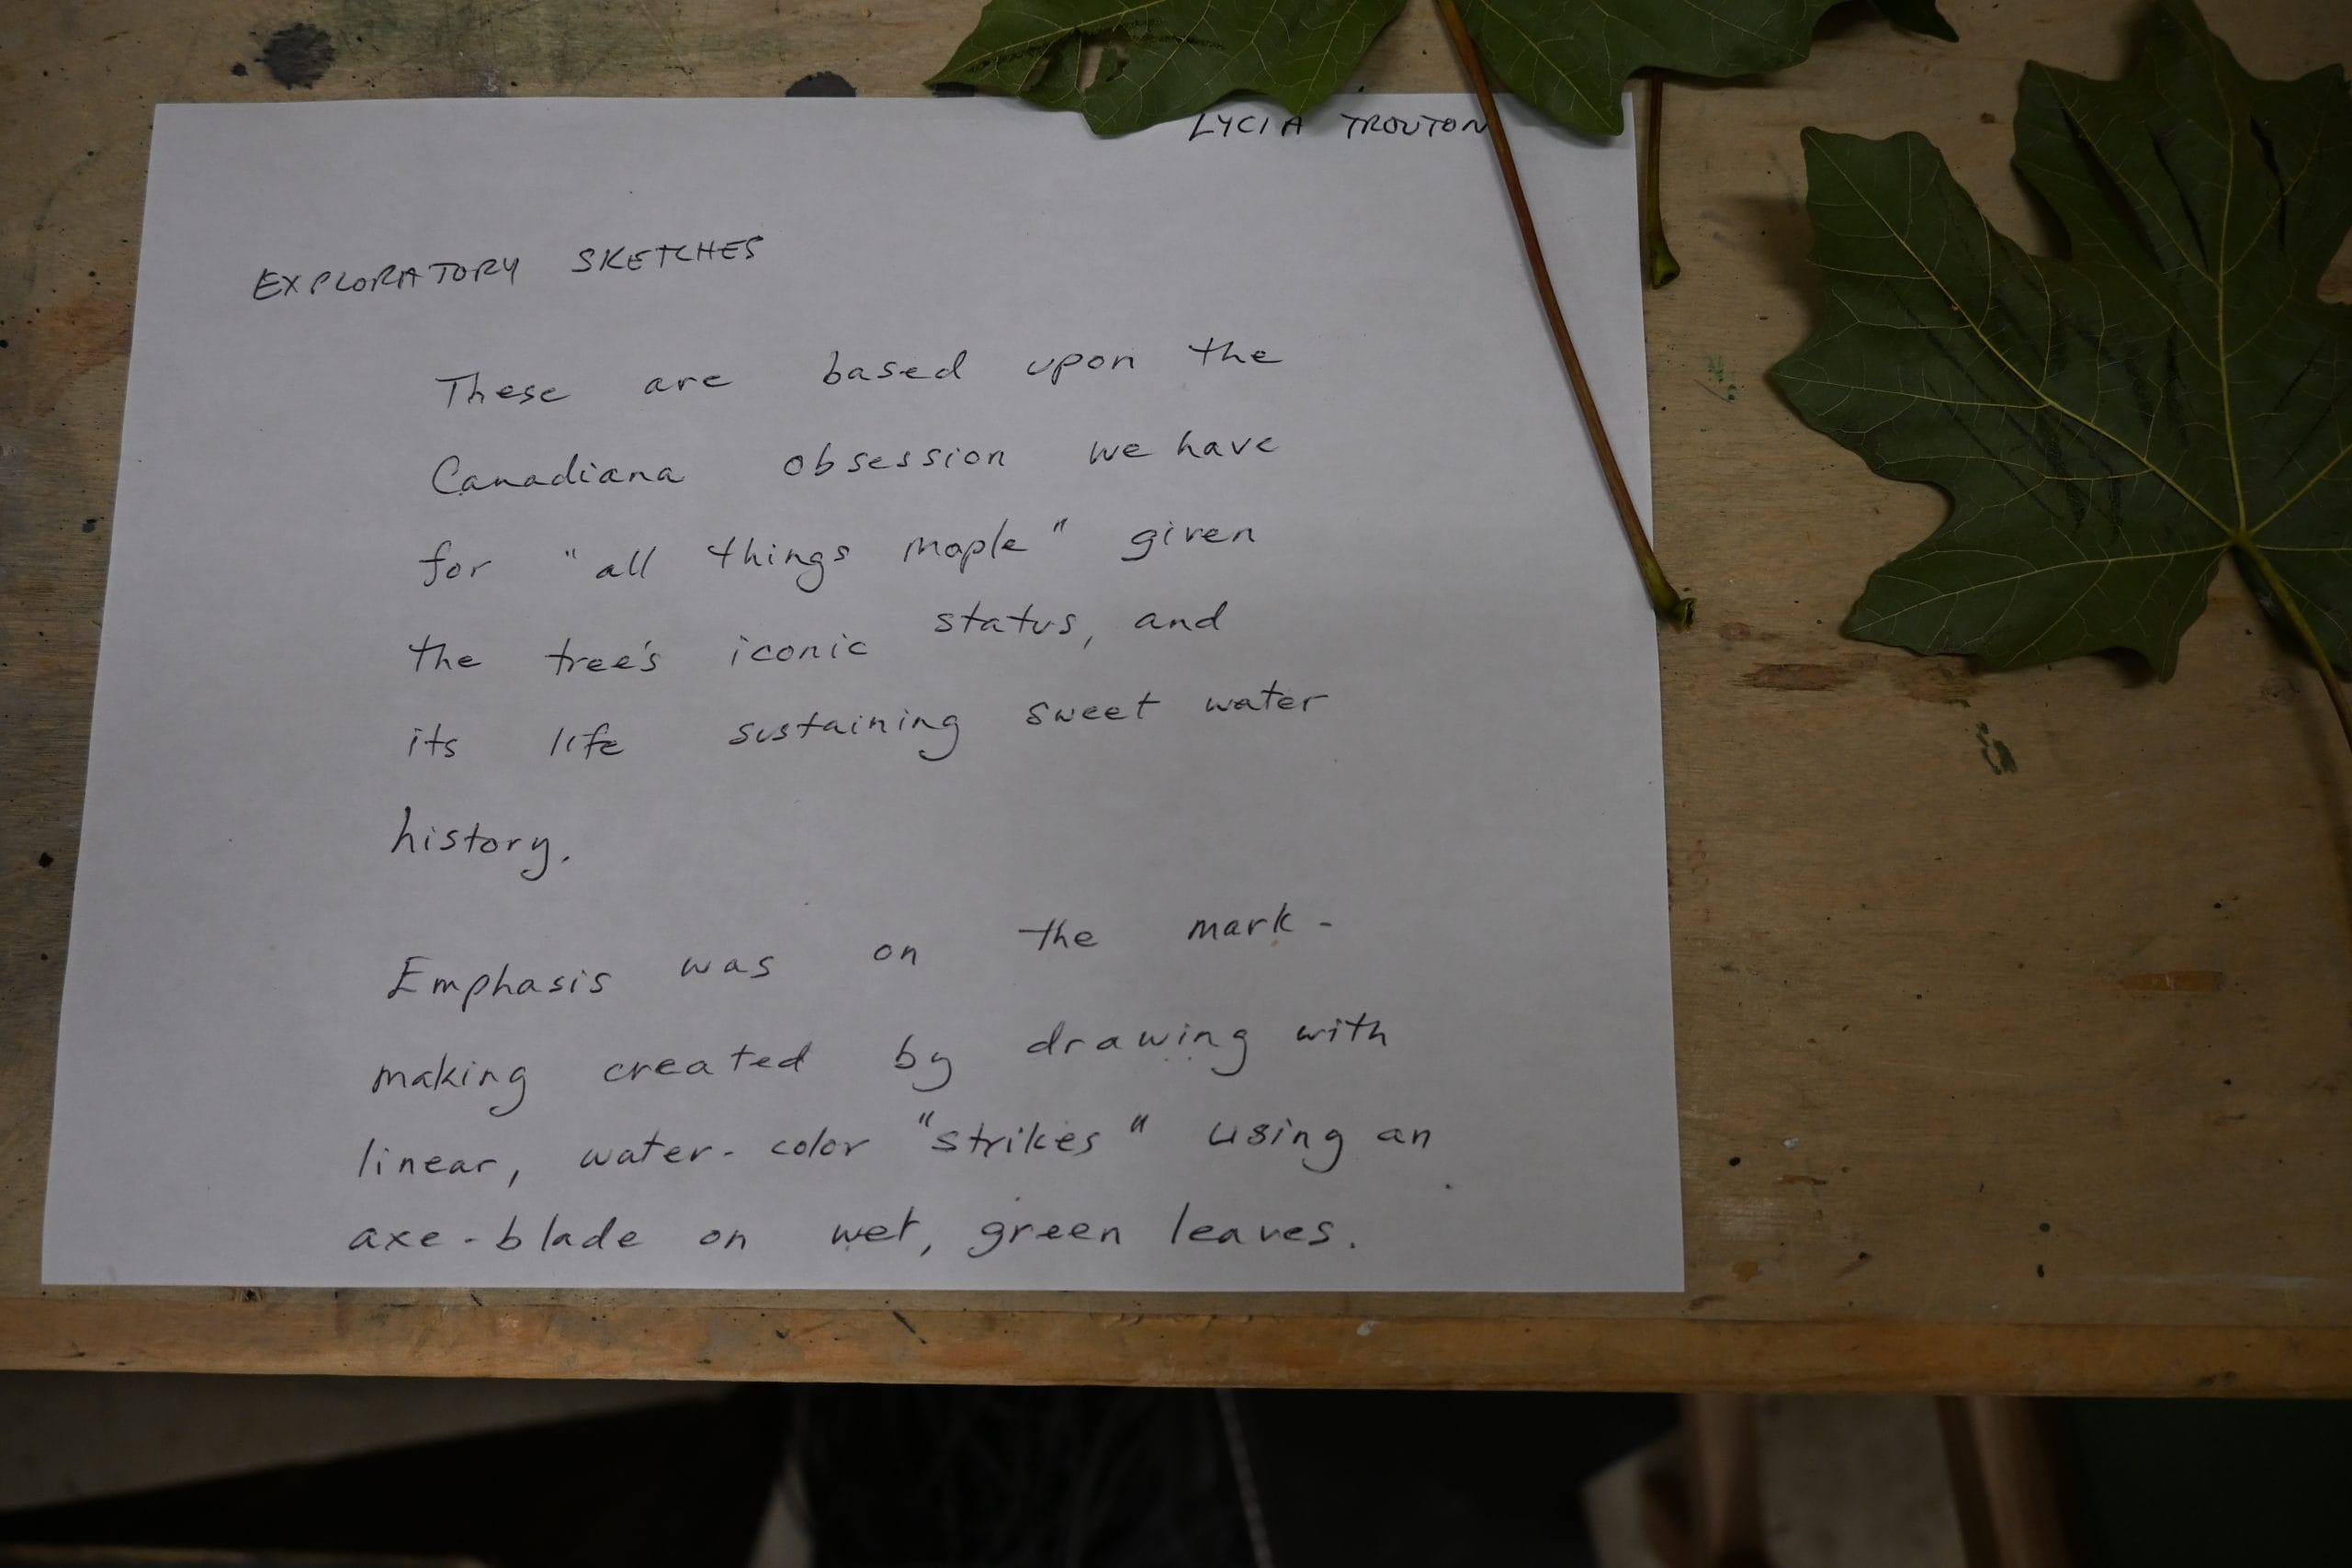 LYCIA TROUTON
EXPLORATORY SKETCHES
These are based upon the
Canadiana obsession we have
for "all things maple" given
the tree's iconic status, and
its life sustaining sweet water
history.
Emphasis was on the mark-
making created by drawing with
linear, water-color "strikes" using an
axe-blade on wet, green leaves.